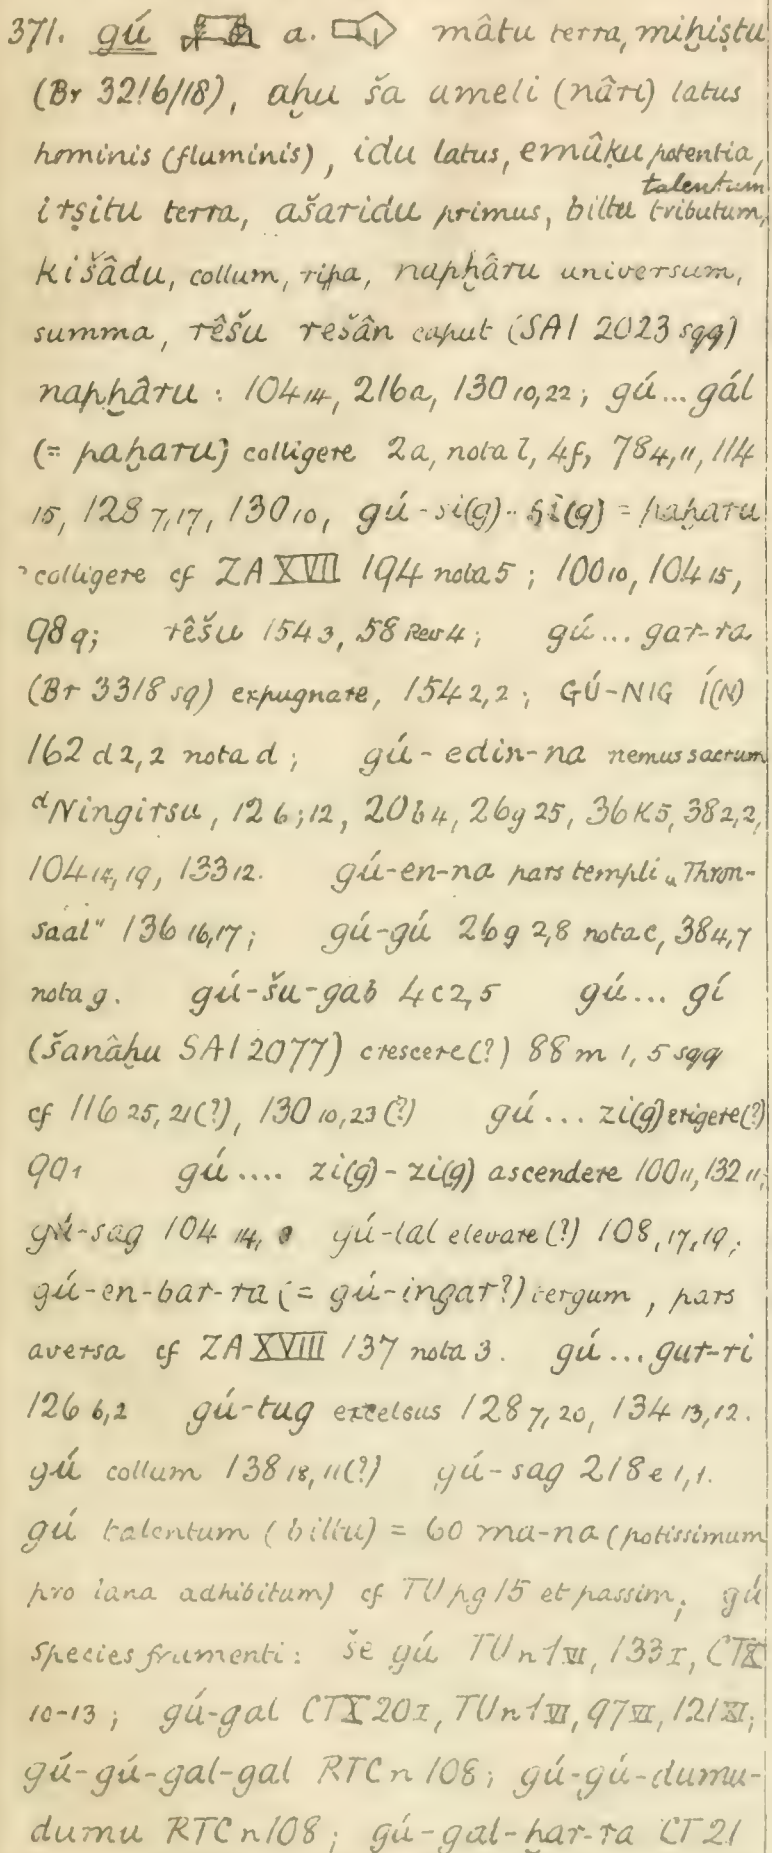 371. gú a. mâtu terra, miḫiṣtu
(Br 3216/18), aḫu ša ameli (nâri) latus
hominis (fluminis), idu latus, emûḳu potentia,
talentum
irṣitu terra, ašaridu primus, biltu tributum,
kišâdu, collum, ripa, napḫâru universum,
summa, rêšu rešân caput (SAI 2023 sqq)
napḫâru : 104 14, 216a, 130 10,22; gú...gál
(= paḫaru) colligere 2a, nota l, 4f, 78 4,11, 114
15, 128 7,17, 130 10, gú-si(g)-si(g) = paḫaru
colligere cf ZA XVII 194 nota 5 ; 100 10, 104 15,
98 9; rêšu 154 3, 58 Rev 4; gú... gar-ra
(Br 3318 sq) expugnare, 154 2,2; GÚ-NIG Í(N)
162 d 2,2 nota d; gú-edin-na nemus sacrum
ᵈNingirsu, 12 6;12, 20 b 4, 26 g 25, 36 K 5, 38 2,2,
104 14, 19, 133 12. gú-en-na pars templi „Thron-
saal" 136 16,17; gú-gú 26 g 2,8 nota c, 38 4,7
nota g. gú-šu-gab 4 c 2,5 gú... gí
(šanâḫu SAI 2077) crescere(?) 88 m 1, 5 sqq
cf 116 25, 21(?), 130 10,23(?) gú... zi(g) erigere(?)
90 1 gú.... zi(g)-zi(g) ascendere 100 11, 132 11,
gú-sag 104 14, 3 gú-lal elevare(?) 108, 17,19;
gú-en-bar-ra (= gú-ingar?) tergum, pars
aversa cf ZA XVIII 137 nota 3. gú...gur-ri
126 6,2 gú-tug excelsus 128 7, 20, 134 13,12.
gú collum 138 18, 11(?) gú-sag 218 e 1,1.
gú talentum (biltu) = 60 ma-na (potissimum
pro lana adhibitum) cf TU pg 15 et passim; gú
species frumenti: še gú TU n 1 VI, 133 I, CT X
10-13; gú-gal CT X 20 I, TU n 1 VI, 97 VI, 121 XI;
gú-gú-gal-gal RTC n 108; gú-gú-dumu-
dumu RTC n 108; gú-gal-ḫar-ra CT 21